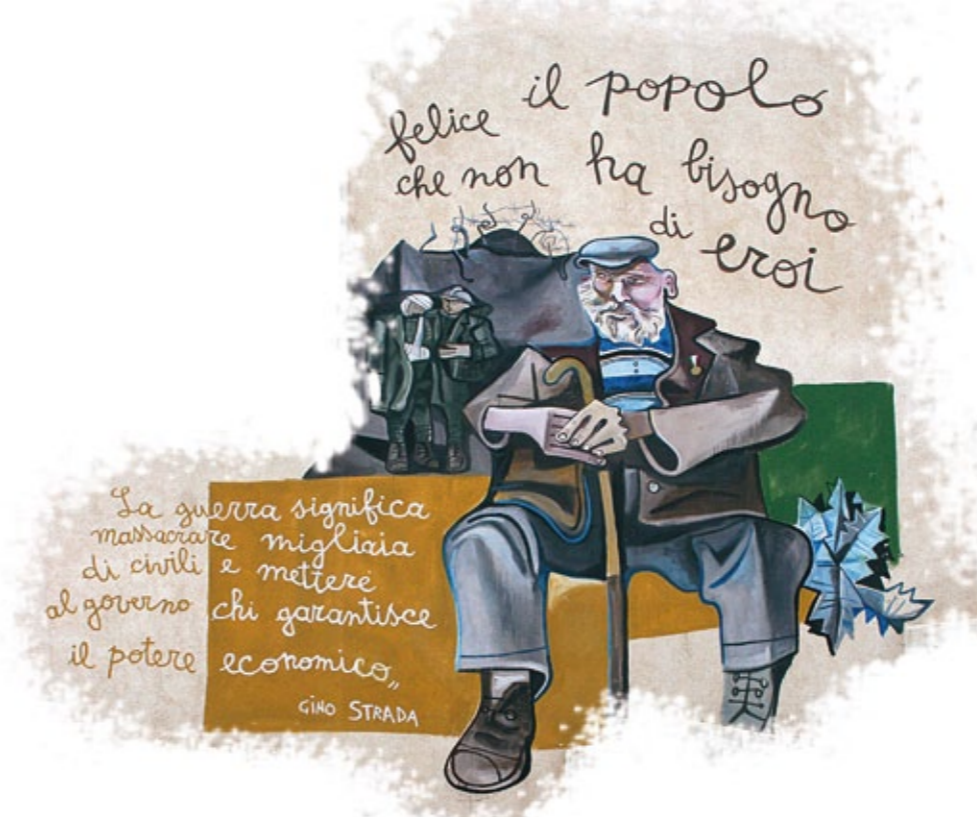 felice il popolo
che non ha bisogno
di eroi
La guerra significa
massacrare migliaia
di civili e mettere
al governo chi garantisce
il potere economico„
GINO STRADA